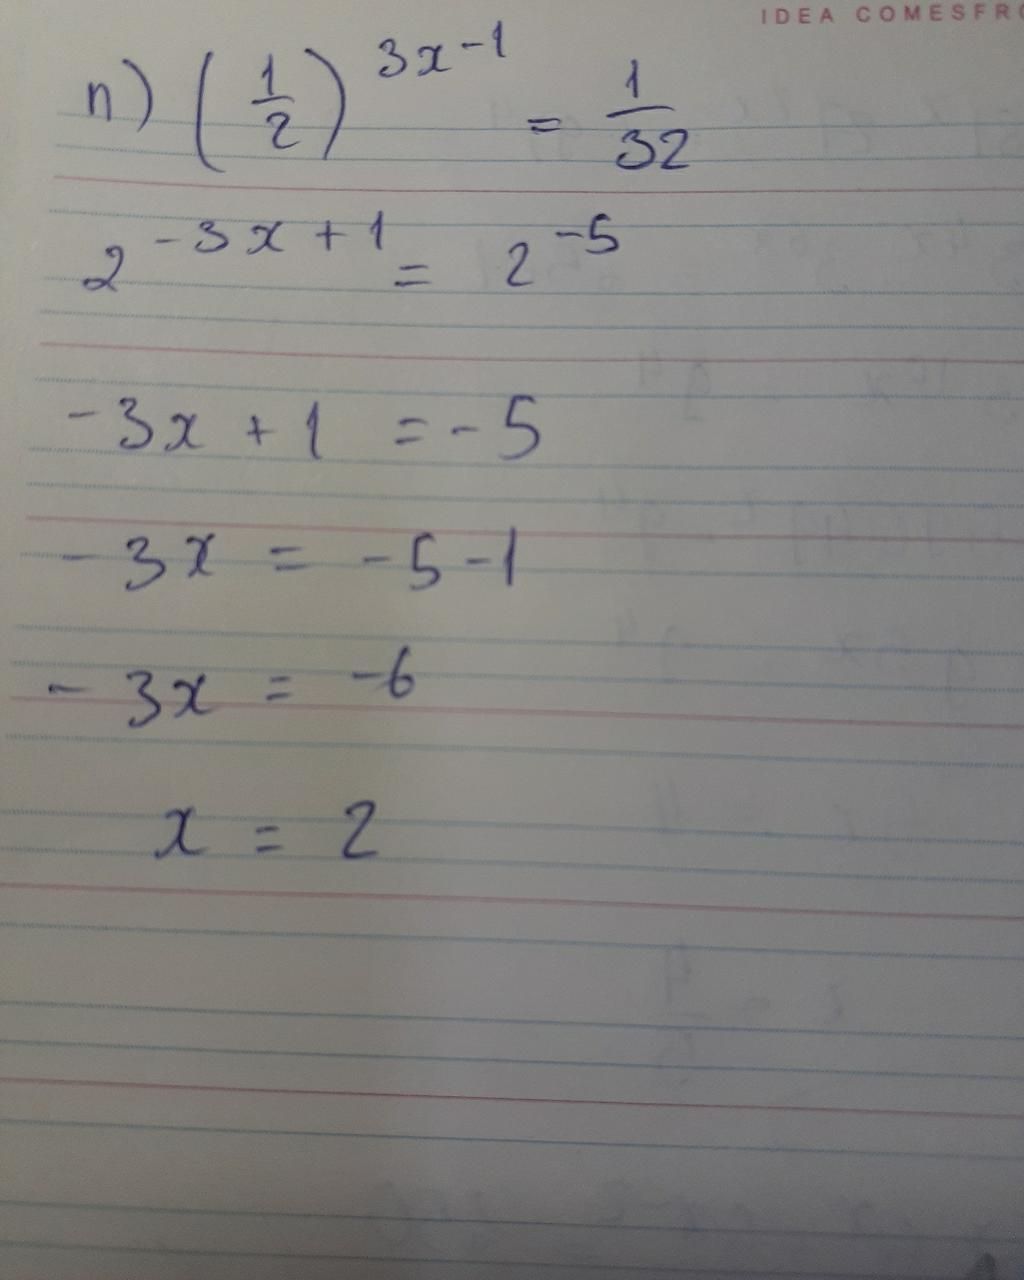 IDEA COMESFRO
n) (1/2)^3x-1 = 1/32
2^-3x+1 = 2^-5
-3x + 1 = -5
-3x = -5-1
-3x = -6
x = 2